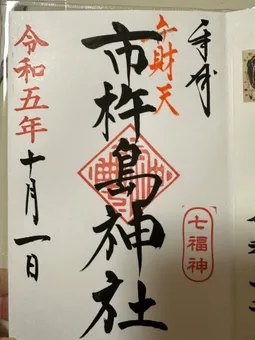 奉拝
弁財天
市杵島神社
七福神
令和五年
十月一日